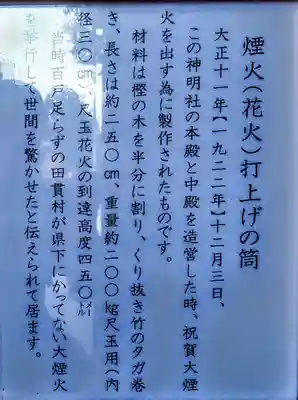 煙火(花火)打上げの筒
大正十一年【一九二二年】十二月三日、
この神明社の本殿と中殿を造営した時、祝賀大煙
火を出す為に製作されたものです。
材料は樫の木を半分に割り、くり抜き竹のタガ巻
き、長さは約二五〇㎝、重量約二〇〇㎏尺玉用(内
径三〇㎝)尺玉花火の到達高度四五〇㍍
当時百戸足らずの田貫村が県下にかってない大煙火
を挙行して世間を驚かせたと伝えられて居ます。